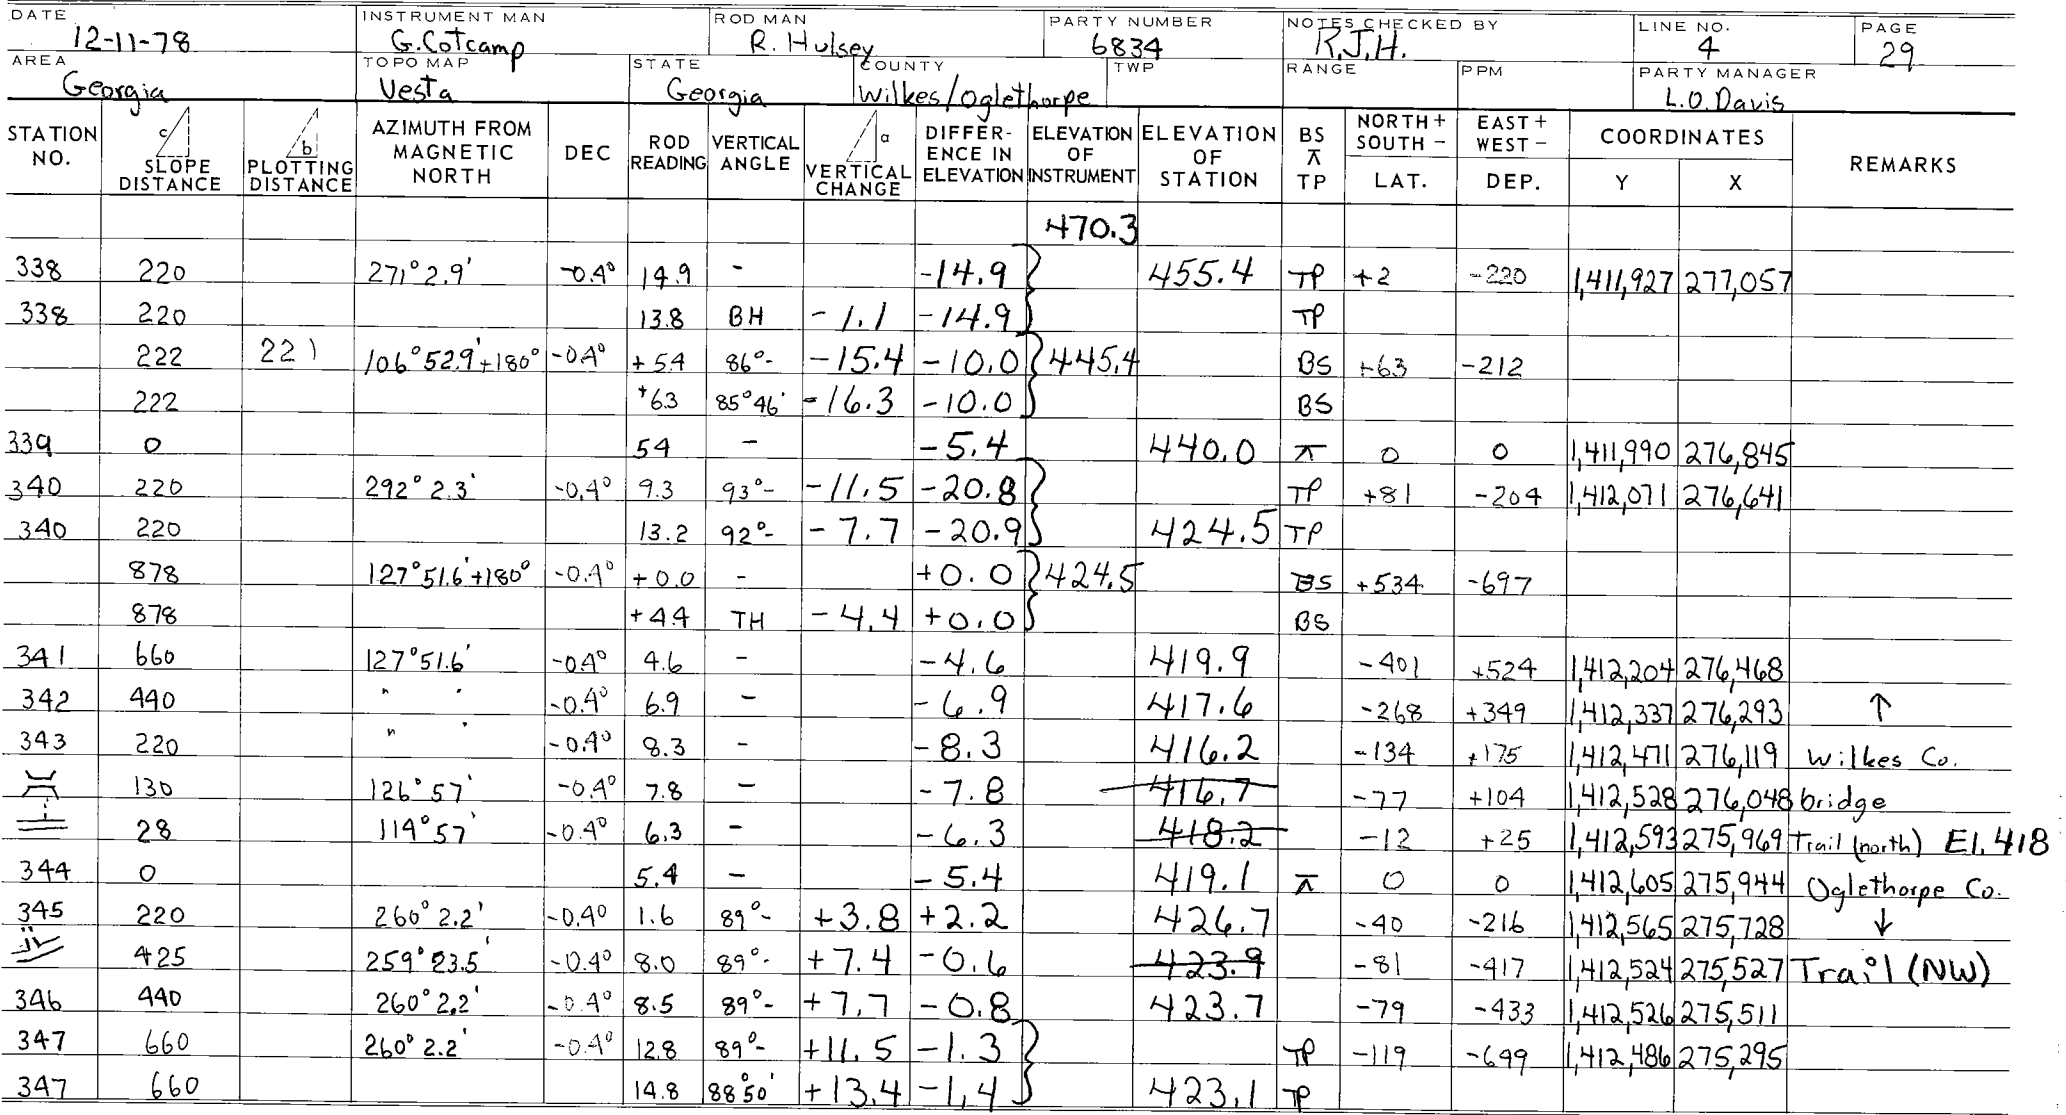 DATE INSTRUMENT MAN ROD MAN PARTY NUMBER NOTES CHECKED BY LINE NO. PAGE
12-11-78 G.Cotcamp R. Hulsey 6834 R.J.H. 4 29
AREA TOPO MAP STATE COUNTY TWP RANGE PPM PARTY MANAGER
Georgia Vesta Georgia Wilkes/Oglethorpe L.O. Davis
STATION NO. c SLOPE DISTANCE b PLOTTING DISTANCE AZIMUTH FROM MAGNETIC NORTH DEC ROD READING VERTICAL ANGLE a VERTICAL CHANGE DIFFER- ENCE IN ELEVATION ELEVATION OF INSTRUMENT ELEVATION OF STATION BS ⊼ TP NORTH + SOUTH - LAT. EAST + WEST - DEP. COORDINATES Y X REMARKS
470.3
338 220 271° 2.9' -0.4° 14.9 - -14.9 455.4 TP +2 -220 1,411,927 277,057
338 220 13.8 BH -1.1 -14.9 TP
222 221 106° 52.9'+180° -0.4° +5.4 86°- -15.4 -10.0 445.4 BS +63 -212
222 +6.3 85°46' -16.3 -10.0 BS
339 0 5.4 - -5.4 440.0 ⊼ 0 0 1,411,990 276,845
340 220 292° 2.3' -0.4° 9.3 93°- -11.5 -20.8 TP +81 -204 1,412,071 276,641
340 220 13.2 92°- -7.7 -20.9 424.5 TP
878 127°51.6'+180° -0.4° +0.0 - +0.0 424.5 BS +534 -697
878 +4.4 TH -4.4 +0.0 BS
341 660 127°51.6' -0.4° 4.6 - -4.6 419.9 -401 +524 1,412,204 276,468
342 440 " ' -0.4° 6.9 - -6.9 417.6 -268 +349 1,412,337 276,293 ↑
343 220 " ' -0.4° 8.3 - -8.3 416.2 -134 +175 1,412,471 276,119 Wilkes Co.
130 126° 57' -0.4° 7.8 - -7.8 416.7 -77 +104 1,412,528 276,048 bridge
28 114° 57' -0.4° 6.3 - -6.3 418.2 -12 +25 1,412,593 275,969 Trail (north) El. 418
344 0 5.4 - -5.4 419.1 ⊼ 0 0 1,412,605 275,944 Oglethorpe Co.
345 220 260° 2.2' -0.4° 1.6 89°- +3.8 +2.2 426.7 -40 -216 1,412,565 275,728 ↓
425 259° 23.5' -0.4° 8.0 89°- +7.4 -0.6 423.9 -81 -417 1,412,524 275,527 Trail (NW)
346 440 260° 2.2' -0.4° 8.5 89°- +7.7 -0.8 423.7 -79 -433 1,412,526 275,511
347 660 260° 2.2' -0.4° 12.8 89°- +11.5 -1.3 TP -119 -649 1,412,486 275,295
347 660 14.8 88°50' +13.4 -1.4 423.1 TP